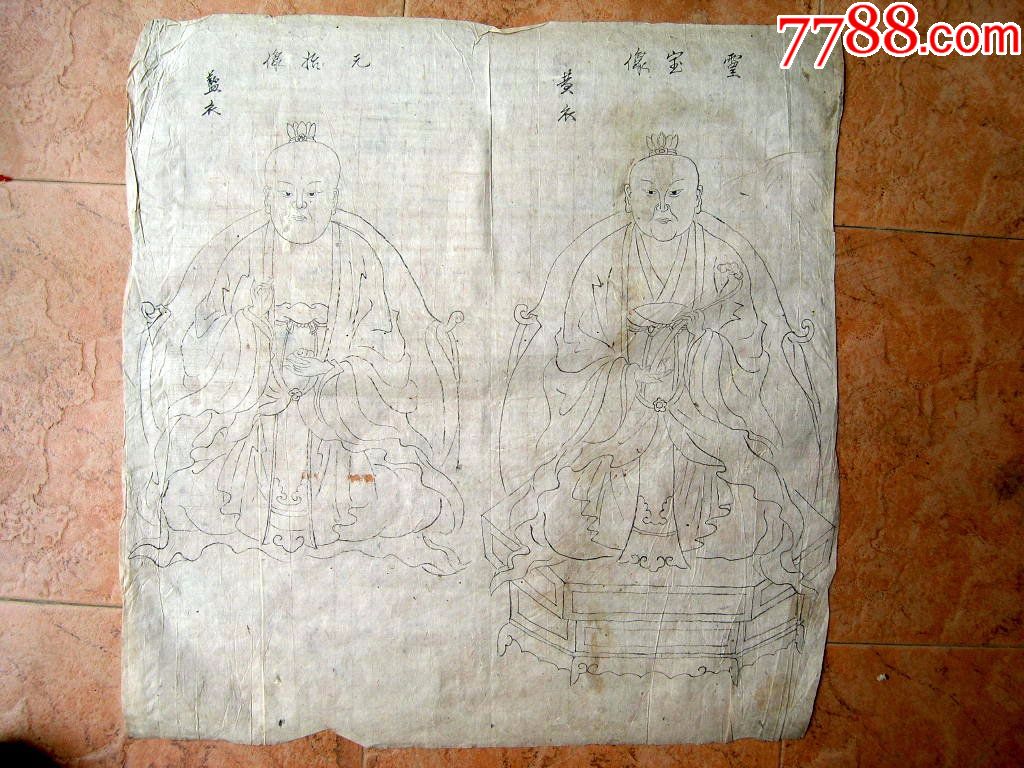 7788.com
霊宝像
黄衣
元始像
藍衣